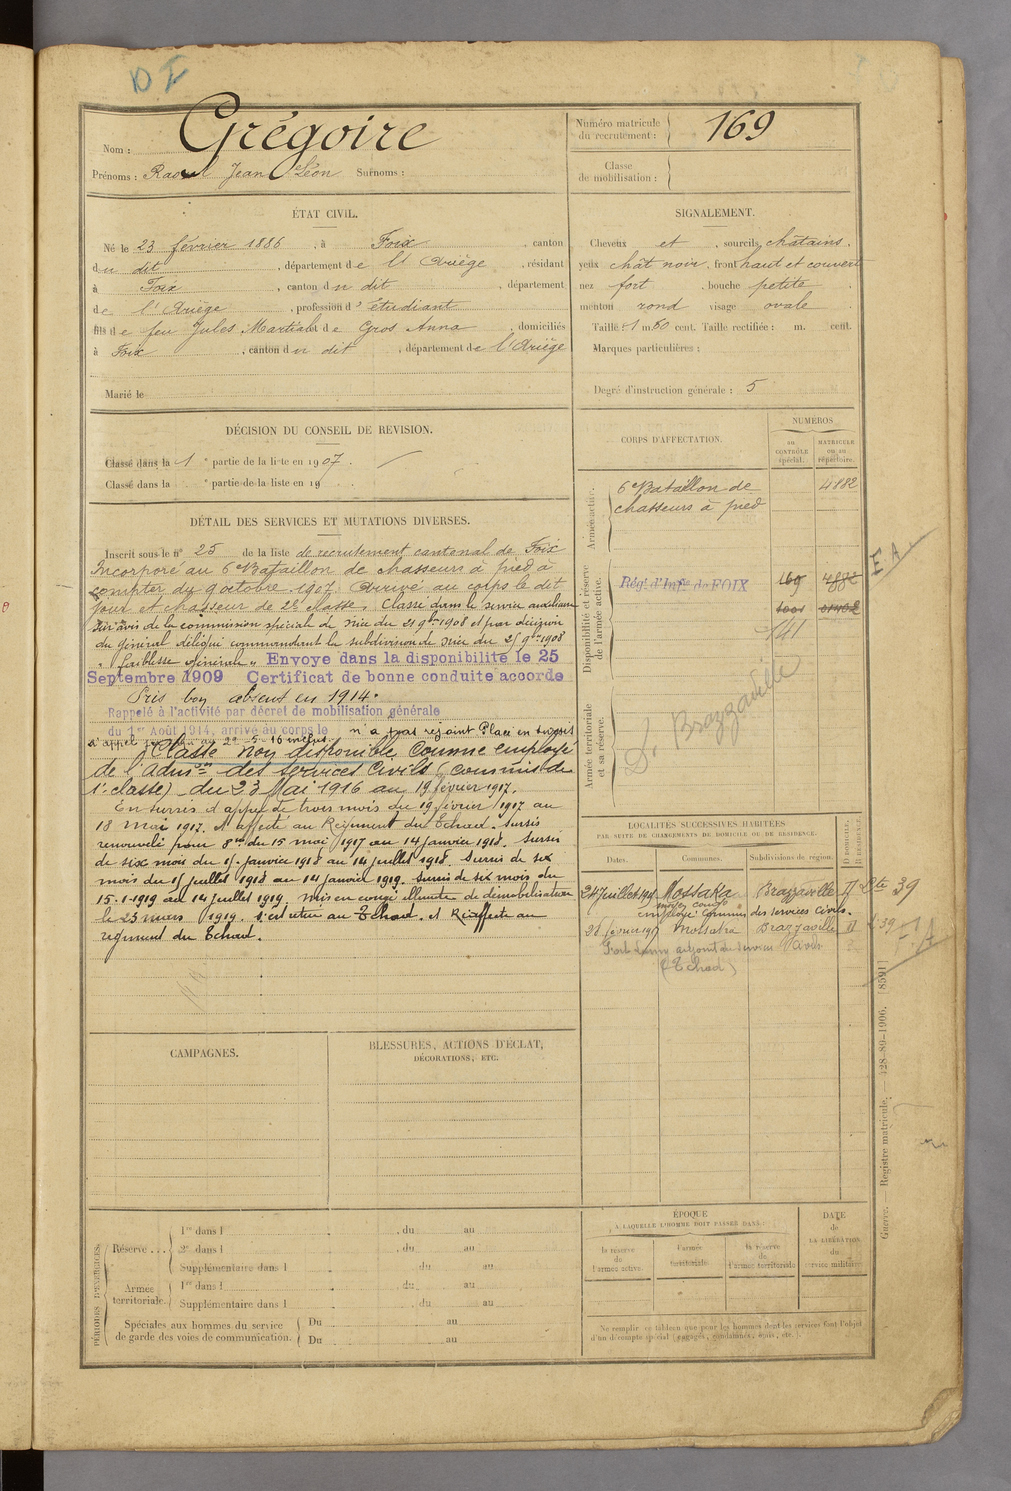 DI
Nom : Grégoire
Prénoms : Raoul Jean Léon Surnoms :
Numéro matricule du recrutement : 169
Classe de mobilisation :
ÉTAT CIVIL.
Né le 23 février 1886, à Foix, canton
du dit, département de l'Ariège, résidant
à Foix, canton du dit, département
de l'Ariège, profession d'étudiant
fils de feu Jules Martial et de Gros Anna, domiciliés
à Foix, canton du dit, département de l'Ariège
Marié le
SIGNALEMENT.
Cheveux et, sourcils châtains,
yeux chât noir, front haut et couvert
nez fort, bouche petite
menton rond visage ovale
Taille : 1 m. 60 cent. Taille rectifiée : m. cent.
Marques particulières :
Degré d'instruction générale : 5
DÉCISION DU CONSEIL DE REVISION.
Classé dans la 1e partie de la liste en 1907.
Classé dans la e partie de la liste en 19
CORPS D'AFFECTATION.
NUMÉROS
au CONTRÔLE spécial.
MATRICULE ou au répertoire.
Armée active.
6e Bataillon de 4882
chasseurs à pied
Disponibilité et réserve de l'armée active.
Régt d'Infie de FOIX 169 4882
141
Armée territoriale et sa réserve.
D. Brazzaville
E A
DÉTAIL DES SERVICES ET MUTATIONS DIVERSES.
Inscrit sous le n° 25 de la liste de recrutement cantonal de Foix
Incorporé au 6e Bataillon de chasseurs à pied à
compter du 9 octobre 1907. Arrivé au corps le dit
jour et chasseur de 2e classe. Classé dans le service auxiliaire
sur avis de la commission spéciale de Nice du 21 9bre 1908 et par décision
du général délégué commandant la subdivision de Nice du 25 9bre 1908
"faiblesse générale" Envoyé dans la disponibilité le 25
Septembre 1909 Certificat de bonne conduite accordé
Pris bon absent en 1914.
Rappelé à l'activité par décret de mobilisation générale
du 1er Août 1914, arrivé au corps le n'a pas rejoint Placé en sursis
d'appel
Classé non disponible comme employé
de l'Admon des services Civils (commis de
1e classe) du 23 Mai 1916 au 19 février 1917.
En sursis d'appel de trois mois du 19 février 1917 au
18 mai 1917. Affecté au Régiment du Tchad. Sursis
renouvelé pour 8 m du 15 mai 1917 au 14 janvier 1918. Sursis
de six mois du 15 janvier 1918 au 14 juillet 1918. Sursis de six
mois du 15 juillet 1918 au 14 janvier 1919. Sursis de six mois du
15-1-1919 au 14 juillet 1919. Mis en congé illimité de démobilisation
le 23 mars 1919. S'est retiré au Tchad. Réaffecté au
régiment du Tchad.
LOCALITÉS SUCCESSIVES HABITÉES
PAR SUITE DE CHANGEMENTS DE DOMICILE OU DE RÉSIDENCE.
Dates. Communes. Subdivisions de région. D. DOMICILE. R. RÉSIDENCE.
Mossaka Brazzaville
moyen congo
employé Commis des services Civils.
Mossaka Brazzaville
Fort Lamy adjoint des services Civils
(Tchad)
39
CAMPAGNES.
BLESSURES, ACTIONS D'ÉCLAT,
DÉCORATIONS, ETC.
PÉRIODES D'EXERCICES.
Réserve...
1re dans l , du au
2e dans l , du au
Supplémentaire dans l du au
Armée territoriale.
1re dans l , du au
Supplémentaire dans l , du au
Spéciales aux hommes du service de garde des voies de communication.
Du au
Du au
ÉPOQUE
À LAQUELLE L'HOMME DOIT PASSER DANS
la réserve de l'armée active.
l'armée territoriale.
la réserve de l'armée territoriale
DATE de LA LIBÉRATION du service militaire
Ne remplir ce tableau que pour les hommes dont les services font l'objet
d'un décompte spécial (engagés, condamnés, omis, etc.)
Guerre. — Registre matricule. — 428-89-1906. [8591]